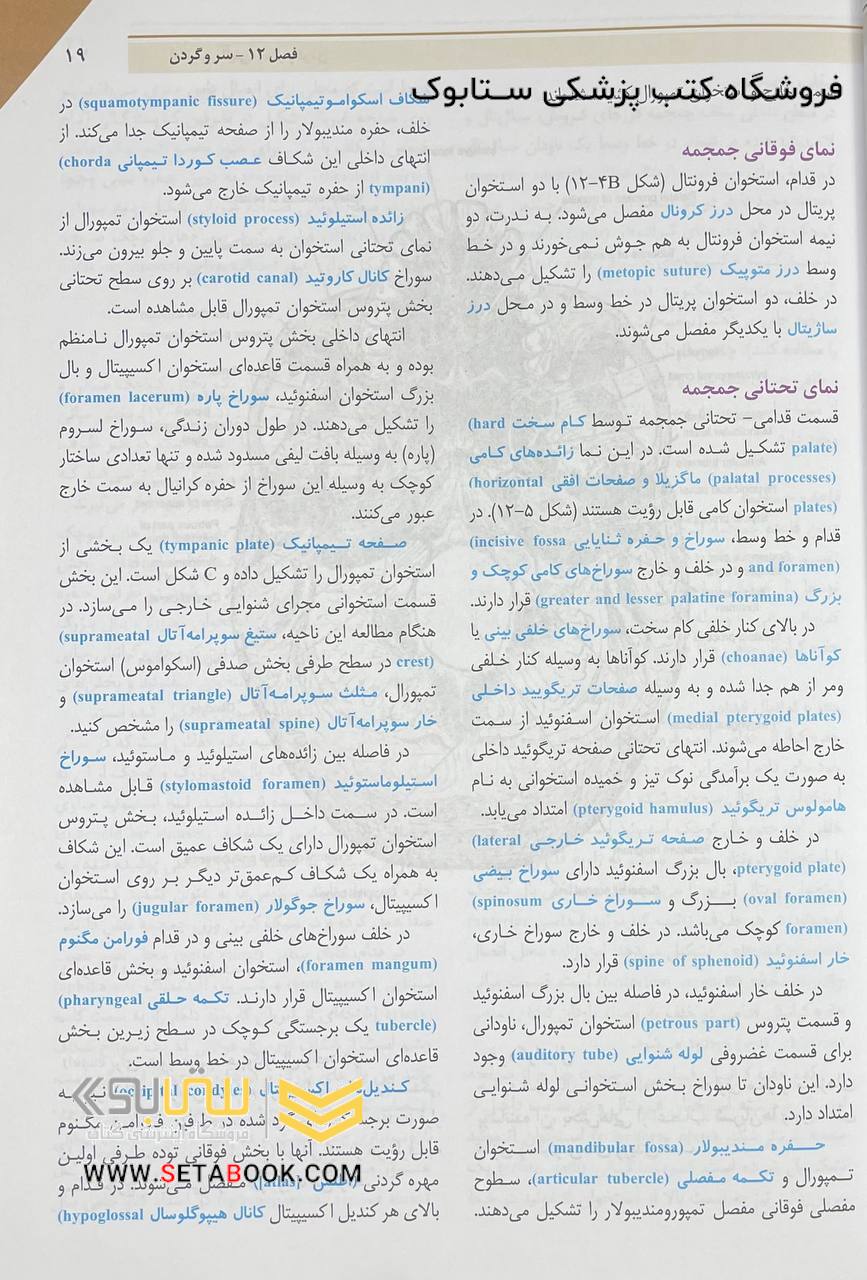 فصل ۱۲ - سر و گردن
۱۹
فروشگاه کتب پزشکی ستابوک
نمای فوقانی جمجمه
در قدام، استخوان فرونتال (شکل ۴B–۱۲) با دو استخوان
پریتال در محل درز کرونال مفصل می‌شود. به ندرت، دو
نیمه استخوان فرونتال به هم جوش نمی‌خورند و در خط
وسط درز متوپیک (metopic suture) را تشکیل می‌دهند.
در خلف، دو استخوان پریتال در خط وسط و در محل درز
ساژیتال با یکدیگر مفصل می‌شوند.
نمای تحتانی جمجمه
قسمت قدامی- تحتانی جمجمه توسط کام سخت (hard
palate) تشکیل شده است. در این نما زائده‌های کامی
(palatal processes) ماگزیلا و صفحات افقی (horizontal
plates) استخوان کامی قابل رؤیت هستند (شکل ۵–۱۲). در
قدام و خط وسط، سوراخ و حفره ثنایایی (incisive fossa
and foramen) و در خلف و خارج سوراخ‌های کامی کوچک و
بزرگ (greater and lesser palatine foramina) قرار دارند.
در بالای کنار خلفی کام سخت، سوراخ‌های خلفی بینی یا
کوآناها (choanae) قرار دارند. کوآناها به وسیله کنار خلفی
ومر از هم جدا شده و به وسیله صفحات تریگویید داخلی
(medial pterygoid plates) استخوان اسفنوئید از سمت
خارج احاطه می‌شوند. انتهای تحتانی صفحه تریگوئید داخلی
به صورت یک برآمدگی نوک تیز و خمیده استخوانی به نام
هامولوس تریگوئید (pterygoid hamulus) امتداد می‌یابد.
در خلف و خارج صفحه تریگوئید خارجی (lateral
pterygoid plate)، بال بزرگ اسفنوئید دارای سوراخ بیضی
(oval foramen) بزرگ و سوراخ خاری (spinosum
foramen) کوچک می‌باشد. در خلف و خارج سوراخ خاری،
خار اسفنوئید (spine of sphenoid) قرار دارد.
در خلف خار اسفنوئید، در فاصله بین بال بزرگ اسفنوئید
و قسمت پتروس (petrous part) استخوان تمپورال، ناودانی
برای قسمت غضروفی لوله شنوایی (auditory tube) وجود
دارد. این ناودان تا سوراخ بخش استخوانی لوله شنوایی
امتداد دارد.
حفره مندیبولار (mandibular fossa) استخوان
تمپورال و تکمه مفصلی (articular tubercle)، سطوح
مفصلی فوقانی مفصل تمپورومندیبولار را تشکیل می‌دهند.
شکاف اسکواموتیمپانیک (squamotympanic fissure) در
خلف، حفره مندیبولار را از صفحه تیمپانیک جدا می‌کند. از
انتهای داخلی این شکاف عصب کوردا تیمپانی (chorda
tympani) از حفره تیمپانیک خارج می‌شود.
زائده استیلوئید (styloid process) استخوان تمپورال از
نمای تحتانی استخوان به سمت پایین و جلو بیرون می‌زند.
سوراخ کانال کاروتید (carotid canal) بر روی سطح تحتانی
بخش پتروس استخوان تمپورال قابل مشاهده است.
انتهای داخلی بخش پتروس استخوان تمپورال نامنظم
بوده و به همراه قسمت قاعده‌ای استخوان اکسیپیتال و بال
بزرگ استخوان اسفنوئید، سوراخ پاره (foramen lacerum)
را تشکیل می‌دهند. در طول دوران زندگی، سوراخ لسروم
(پاره) به وسیله بافت لیفی مسدود شده و تنها تعدادی ساختار
کوچک به وسیله این سوراخ از حفره کرانیال به سمت خارج
عبور می‌کنند.
صفحه تیمپانیک (tympanic plate) یک بخشی از
استخوان تمپورال را تشکیل داده و C شکل است. این بخش
قسمت استخوانی مجرای شنوایی خارجی را می‌سازد. در
هنگام مطالعه این ناحیه، ستیغ سوپرامه‌آتال (suprameatal
crest) در سطح طرفی بخش صدفی (اسکواموس) استخوان
تمپورال، مثلث سوپرامه‌آتال (suprameatal triangle) و
خار سوپرامه‌آتال (suprameatal spine) را مشخص کنید.
در فاصله بین زائده‌های استیلوئید و ماستوئید، سوراخ
استیلوماستوئید (stylomastoid foramen) قابل مشاهده
است. در سمت داخل زائده استیلوئید، بخش پتروس
استخوان تمپورال دارای یک شکاف عمیق است. این شکاف
به همراه یک شکاف کم‌عمق‌تر دیگر بر روی استخوان
اکسیپیتال، سوراخ جوگولار (jugular foramen) را می‌سازد.
در خلف سوراخ‌های خلفی بینی و در قدام فورامن مگنوم
(foramen mangum)، استخوان اسفنوئید و بخش قاعده‌ای
استخوان اکسیپیتال قرار دارند. تکمه حلقی (pharyngeal
tubercle) یک برجستگی کوچک در سطح زیرین بخش
قاعده‌ای استخوان اکسیپیتال در خط وسط است.
کندیل‌های اکسیپیتال (occipital condyles) نیز به
صورت شده در طرفین فورامن مگنوم
قابل رؤیت هستند. آنها با بخش فوقانی توده طرفی اولین
مهره گردنی (اطلس [atlas]) مفصل می‌شوند. در قدام و
بالای هر کندیل اکسیپیتال کانال هیپوگلوسال (hypoglossal
ستابوک
فروشگاه اینترنتی کتاب
WWW.SETABOOK.COM